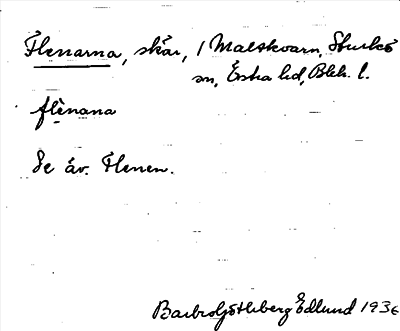 Flenarna, skär, / Malskvarn, Sturkö
sn, Östra hd, Blek. l.
flènana
Se äv. Flenen.
Barbro Götheberg Edlund 1936